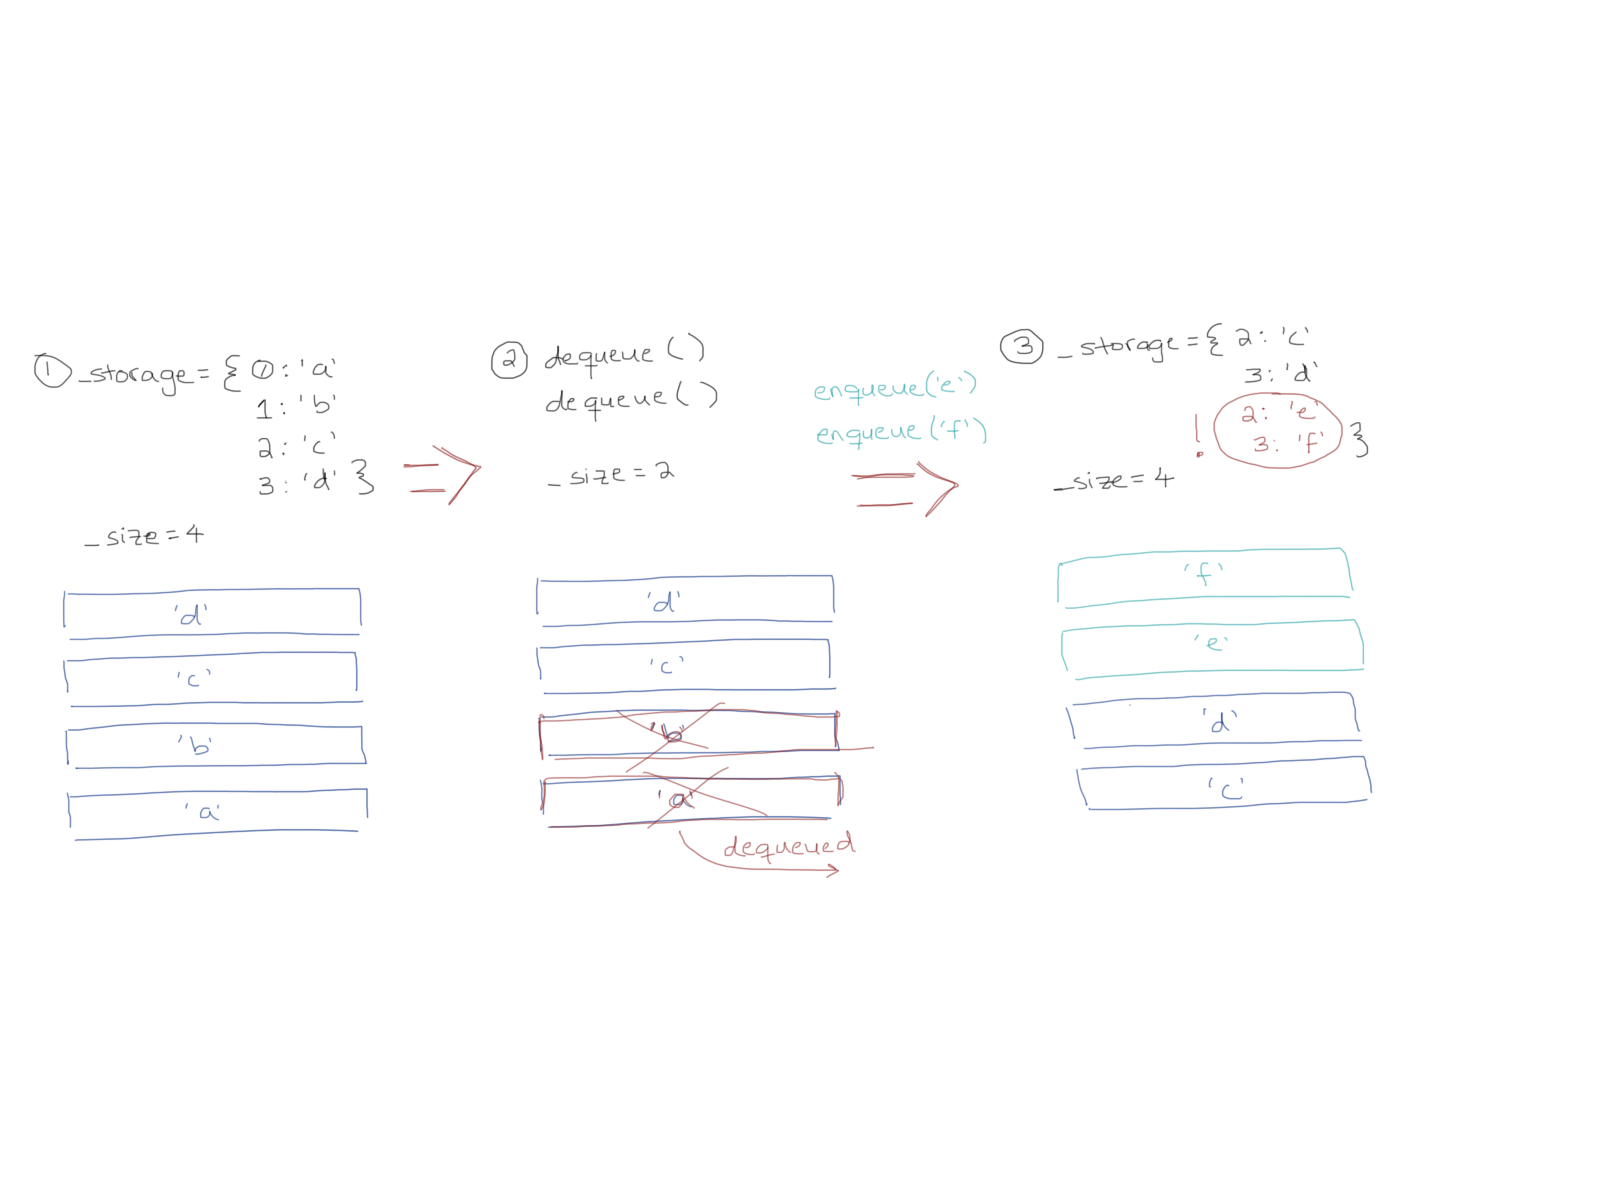 ① _storage = { 0: 'a'
1: 'b'
2: 'c'
3: 'd' }
_size = 4
'd'
'c'
'b'
'a'
② dequeue ( )
dequeue ( )
_size = 2
'd'
'c'
'b'
'a'
dequeued
enqueue('e')
enqueue('f')
③ _storage = { 2: 'c'
3: 'd'
! 2: 'e'
3: 'f' }
_size = 4
'f'
'e'
'd'
'c'